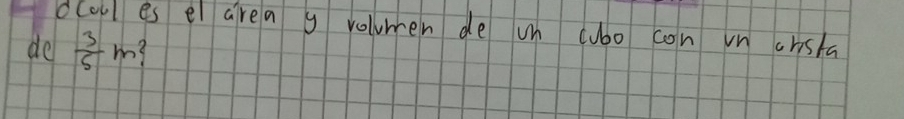 ¿Cual es el área y volumen de un cubo con un arista
de 3/5 m?